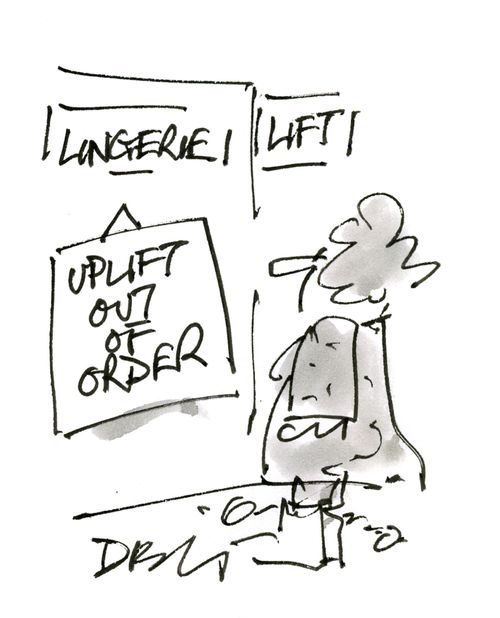 LINGERIE
LIFT
UPLIFT
OUT
OF
ORDER